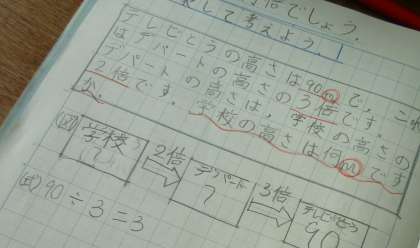 倍でしょう.
して考えよう
テレビとうの高さは90mで，これ
はデパートの高さの3倍です。
デパートの高さは，学校の高さの
2倍です。学校の高さは何mです
か。
(図) 学校 (?) 2倍 デパート ? 3倍 テレビとう 90
(式) 90÷3=3